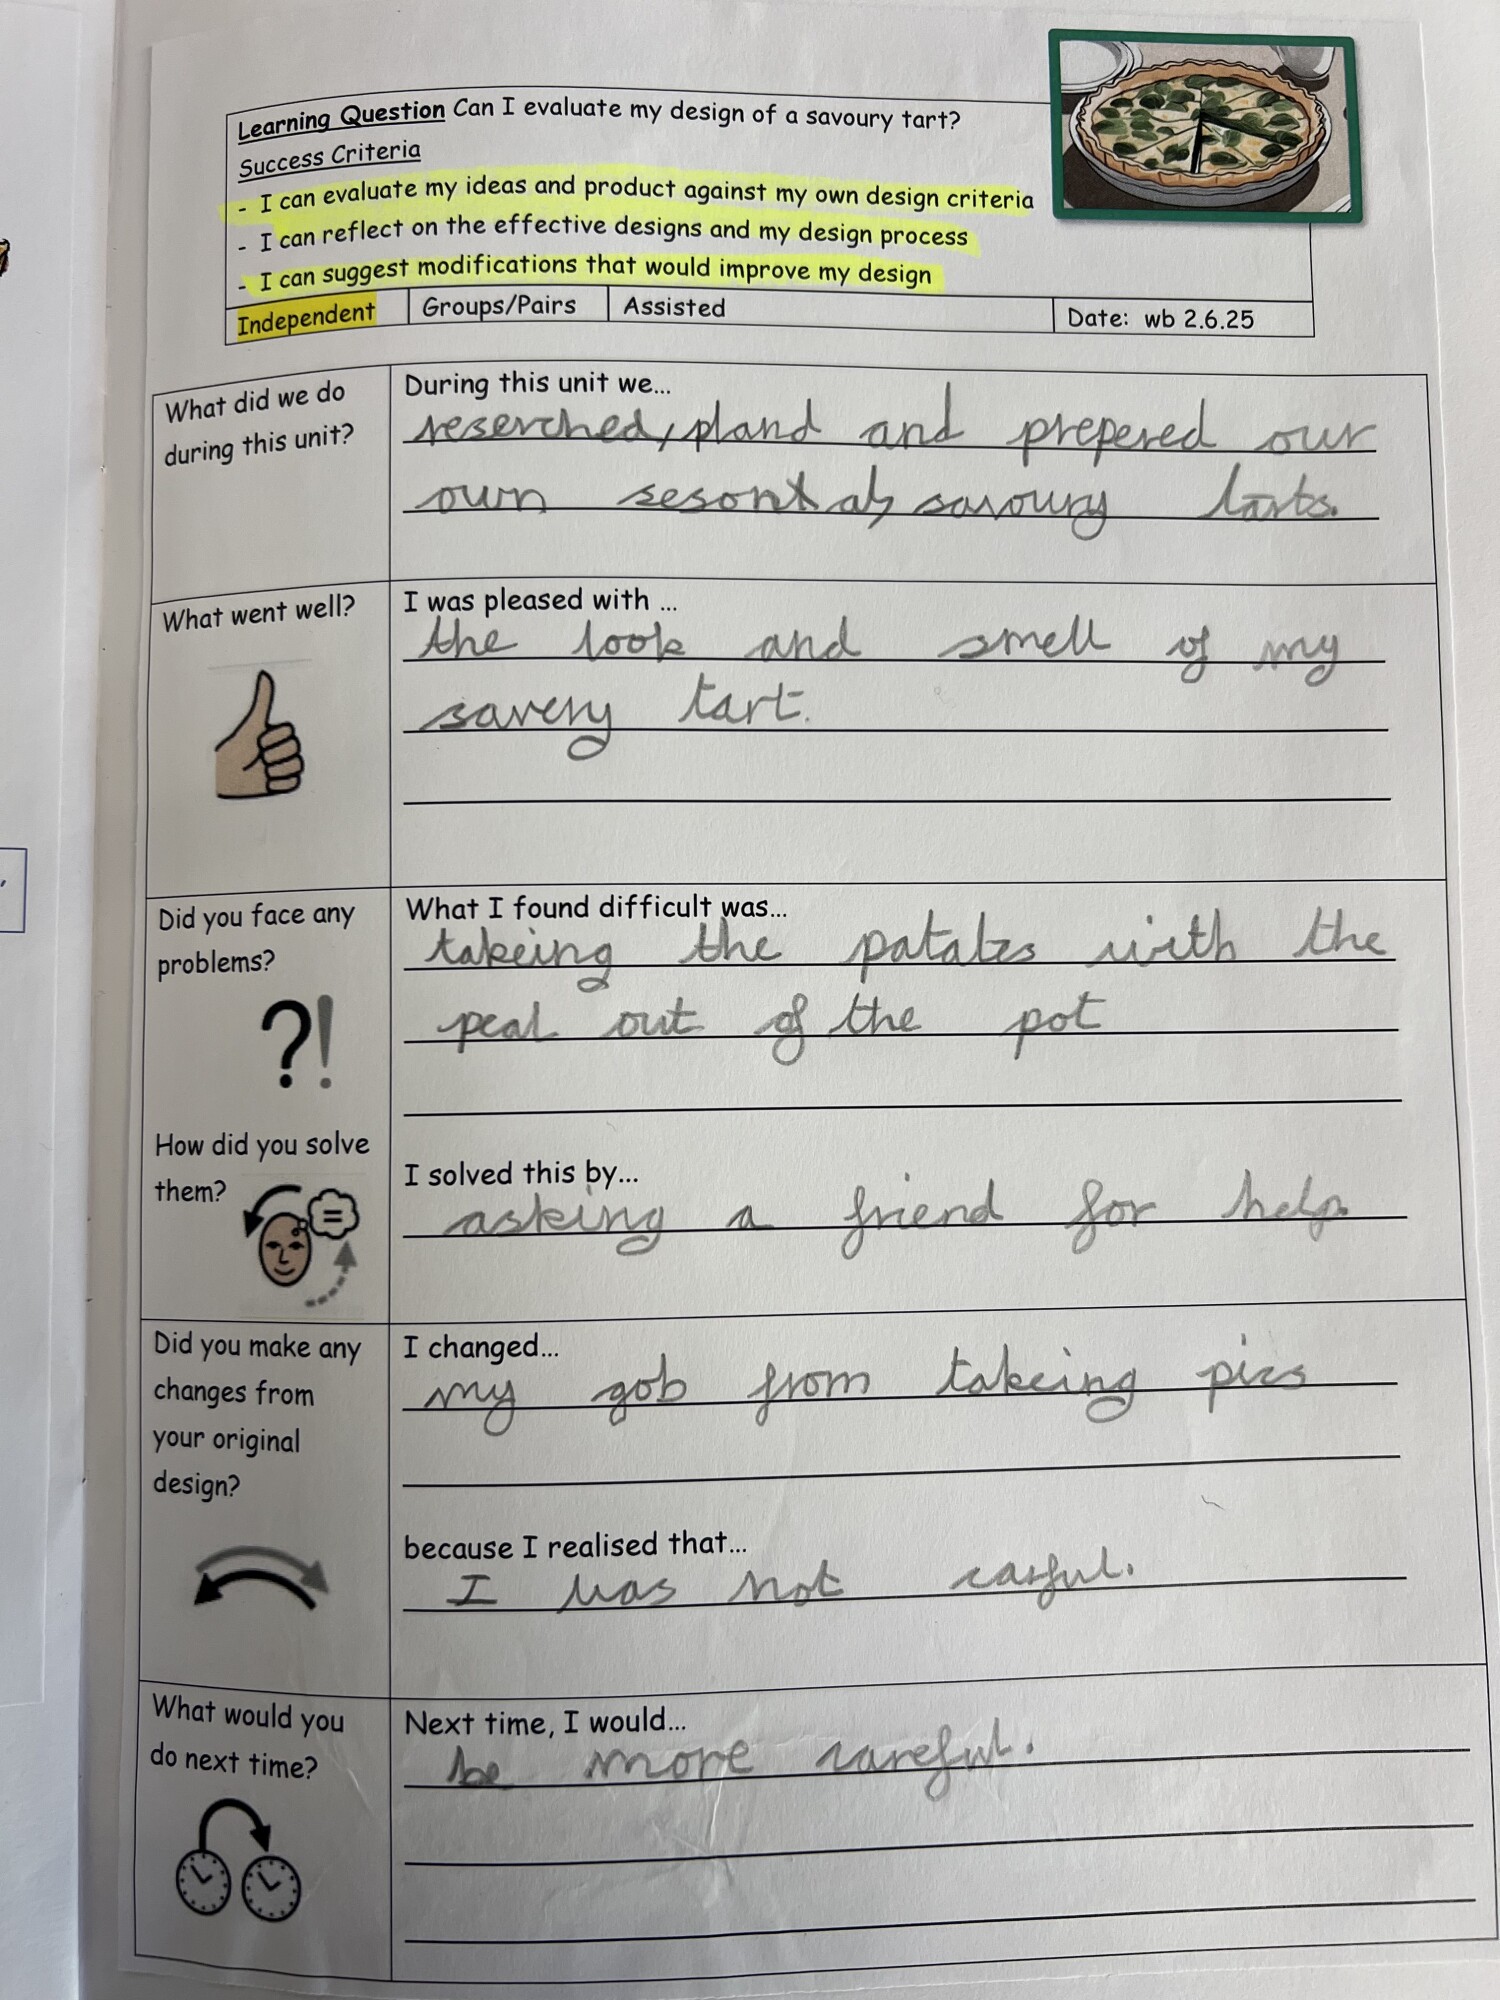 Learning Question Can I evaluate my design of a savoury tart?
Success Criteria
- I can evaluate my ideas and product against my own design criteria
- I can reflect on the effective designs and my design process
- I can suggest modifications that would improve my design
Independent
Groups/Pairs
Assisted
Date: wb 2.6.25
What did we do
during this unit?
During this unit we...
reserched, pland and prepered our
own savoury tarts.
What went well?
I was pleased with ...
the look and smell of my
savery tart.
Did you face any
problems?
?!
What I found difficult was...
takeing the with the
peal out of the pot
How did you solve
them?
=
I solved this by...
asking a friend for help.
Did you make any
changes from
your original
design?
I changed...
my gob from takeing pics
because I realised that...
I was not carful.
What would you
do next time?
Next time, I would...
be more careful.